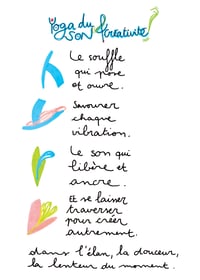 Yoga du
SON & Créativité !
Le souffle
qui pose
et ouvre.
Savourer
chaque
vibration.
Le son qui
libère et
ancre.
Et se laisser
traverser
pour créer
autrement.
dans l'élan, la douceur,
la lenteur du moment.